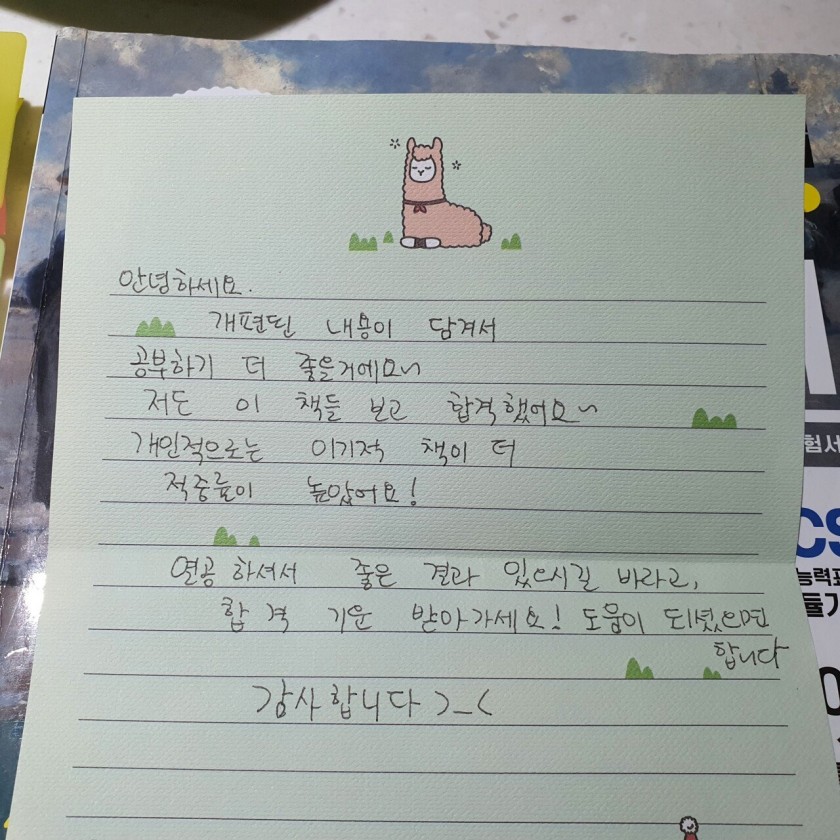 안녕하세요.
개편된 내용이 담겨서
공부하기 더 좋을거에요~
저도 이 책들 보고 합격했어요~
개인적으로는 이기적 책이 더
적중률이 높았어요!
열공하셔서 좋은 결과 있으시길 바라고,
합격 기운 받아가세요! 도움이 되셨으면
합니다
감사합니다 >_<
험서
CS
능력표